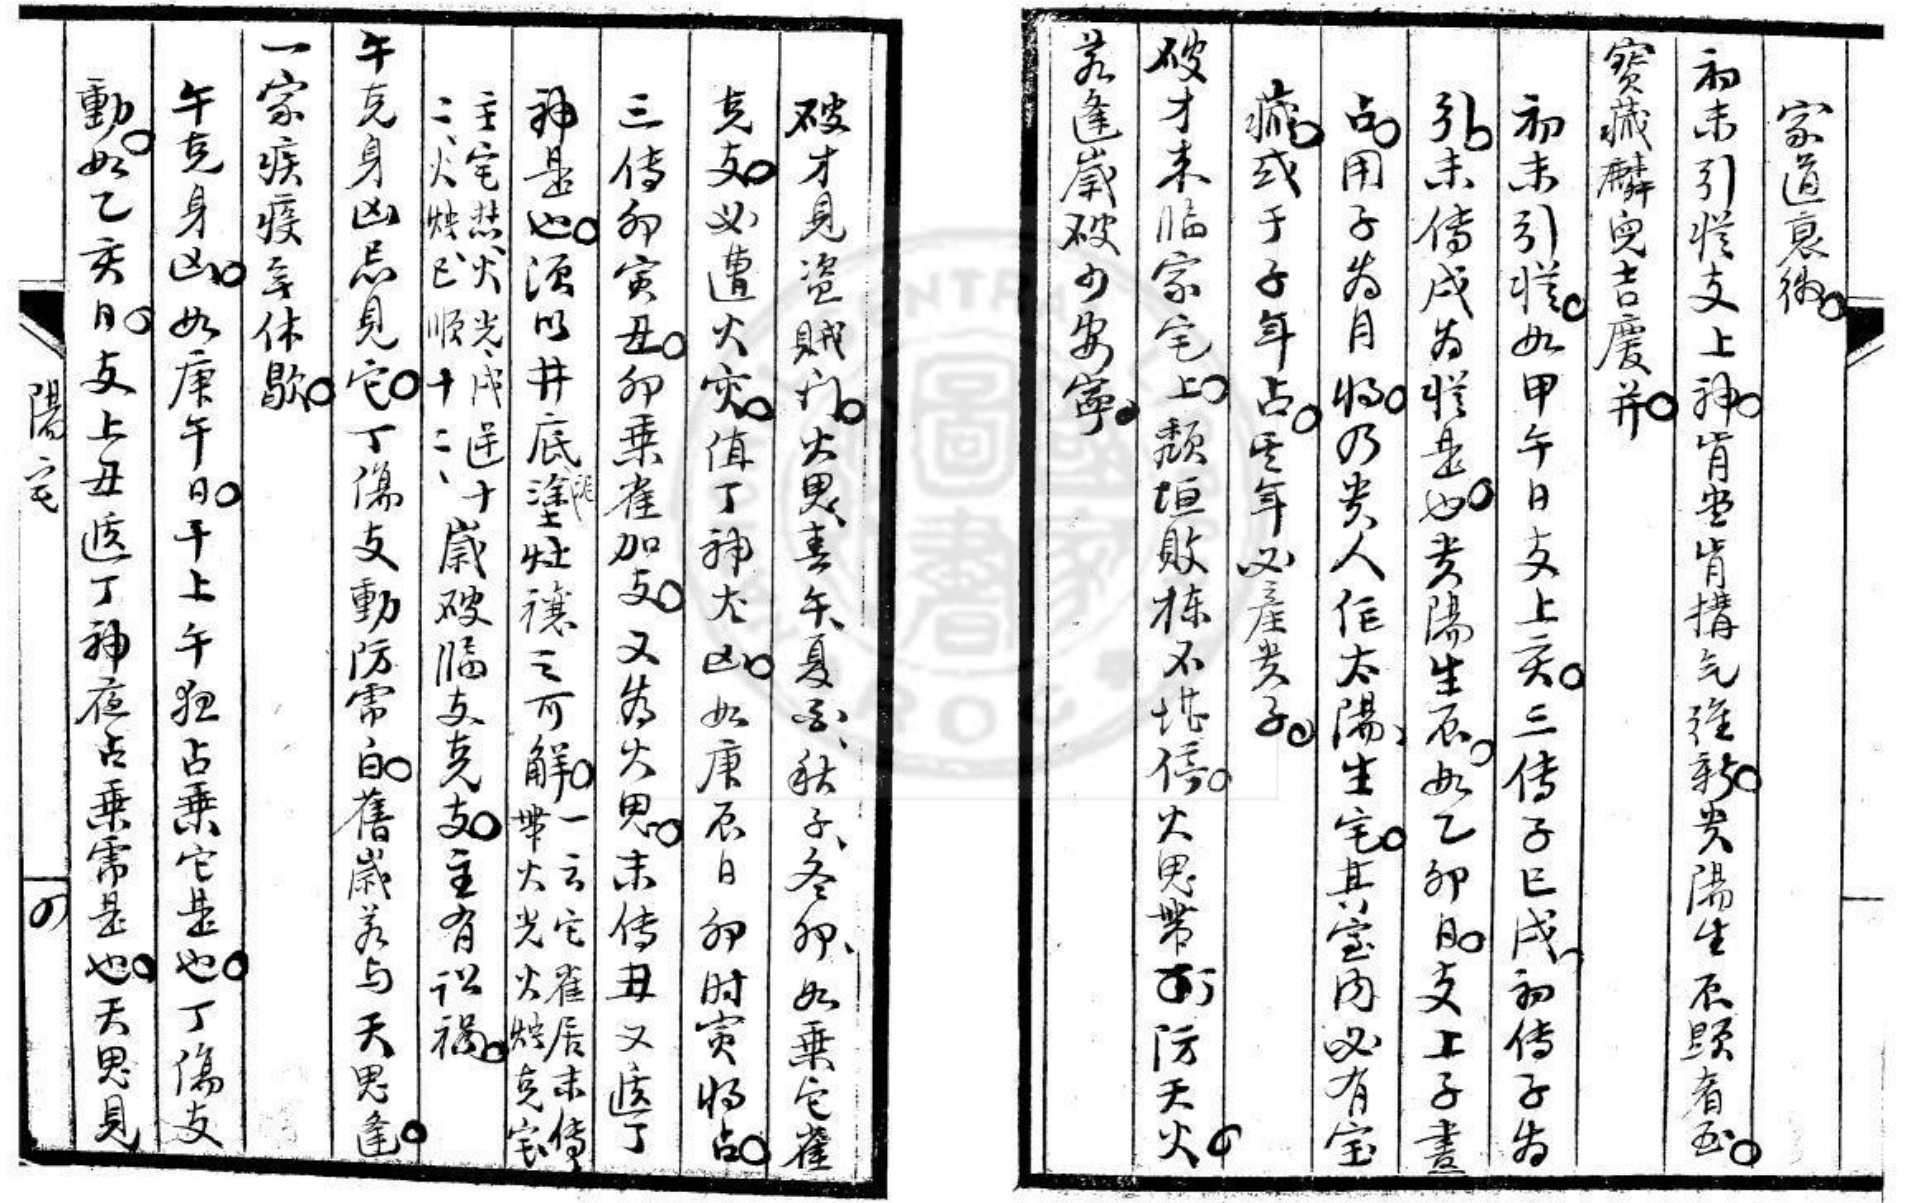 家道衰微
初末引從支上神肯堂肯搆氣維新貴陽生辰顯者至
寶藏麟兒吉慶并
初末引從如甲午日支上亥三傳子巳戌初傳子為
引末傳戌為從是也貴陽生辰如乙卯日支上子晝
占用子為月將乃貴人作太陽生宅其室內必有宝
藏或于子年占是年必產貴子
破才来臨家宅上頹垣敗棟不堪停火鬼帶刑防天火
若逢歲破少安寧
破才見盗賊行火鬼春午夏酉秋子冬卯如乘它雀
克支必遭火灾值丁神尤凶如庚辰日卯时寅将占
三傳卯寅丑卯乘雀加支又為火鬼末傳丑又遁丁
神是也須以井底泥塗灶禳之可解一云它雀居末傳帶火光火燭克宅
主宅焚火光戌逆十二火燭巳順十二歲破臨支克支主有訟禍
午克身凶忌見它丁傷支動防雷白舊歲若与天鬼逢
一家疾疫無休歇
午克身凶如庚午日干上午夜占乘它是也丁傷支
動如乙亥日支上丑遁丁神夜占乘雷是也天鬼見
陽宅